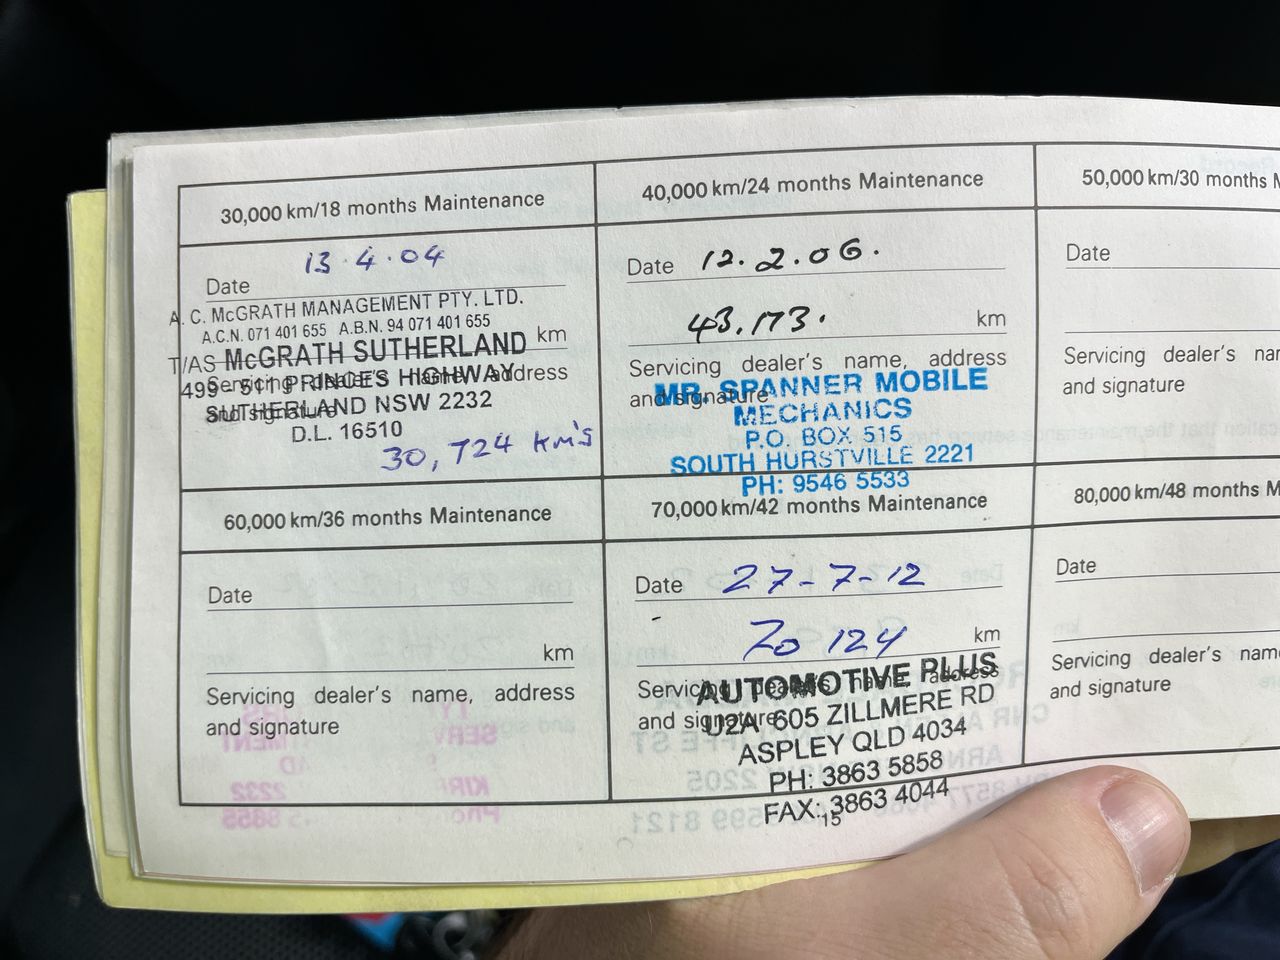 30,000 km/18 months Maintenance
13.4.04
Date
A. C. McGRATH MANAGEMENT PTY. LTD.
A.C.N. 071 401 655 A.B.N. 94 071 401 655
km
T/AS McGRATH SUTHERLAND
Servicing dealer's name, address
499 - 511 PRINCES HIGHWAY
and signature
SUTHERLAND NSW 2232
D.L. 16510
30,724 KM'S
40,000 km/24 months Maintenance
Date 12.2.06.
43.173. km
Servicing dealer's name, address
and signature
MR. SPANNER MOBILE
MECHANICS
P.O. BOX 515
SOUTH HURSTVILLE 2221
PH: 9546 5533
50,000 km/30 months
Date
Servicing dealer's
and signature
60,000 km/36 months Maintenance
Date
km
Servicing dealer's name, address
and signature
70,000 km/42 months Maintenance
Date 27-7-12
70 124 km
Servicing dealer's name, address
and signature
AUTOMOTIVE PLUS
U2A 605 ZILLMERE RD
ASPLEY QLD 4034
PH: 3863 5858
FAX: 3863 4044
15
80,000 km/48 months
Date
Servicing dealer's
and signature